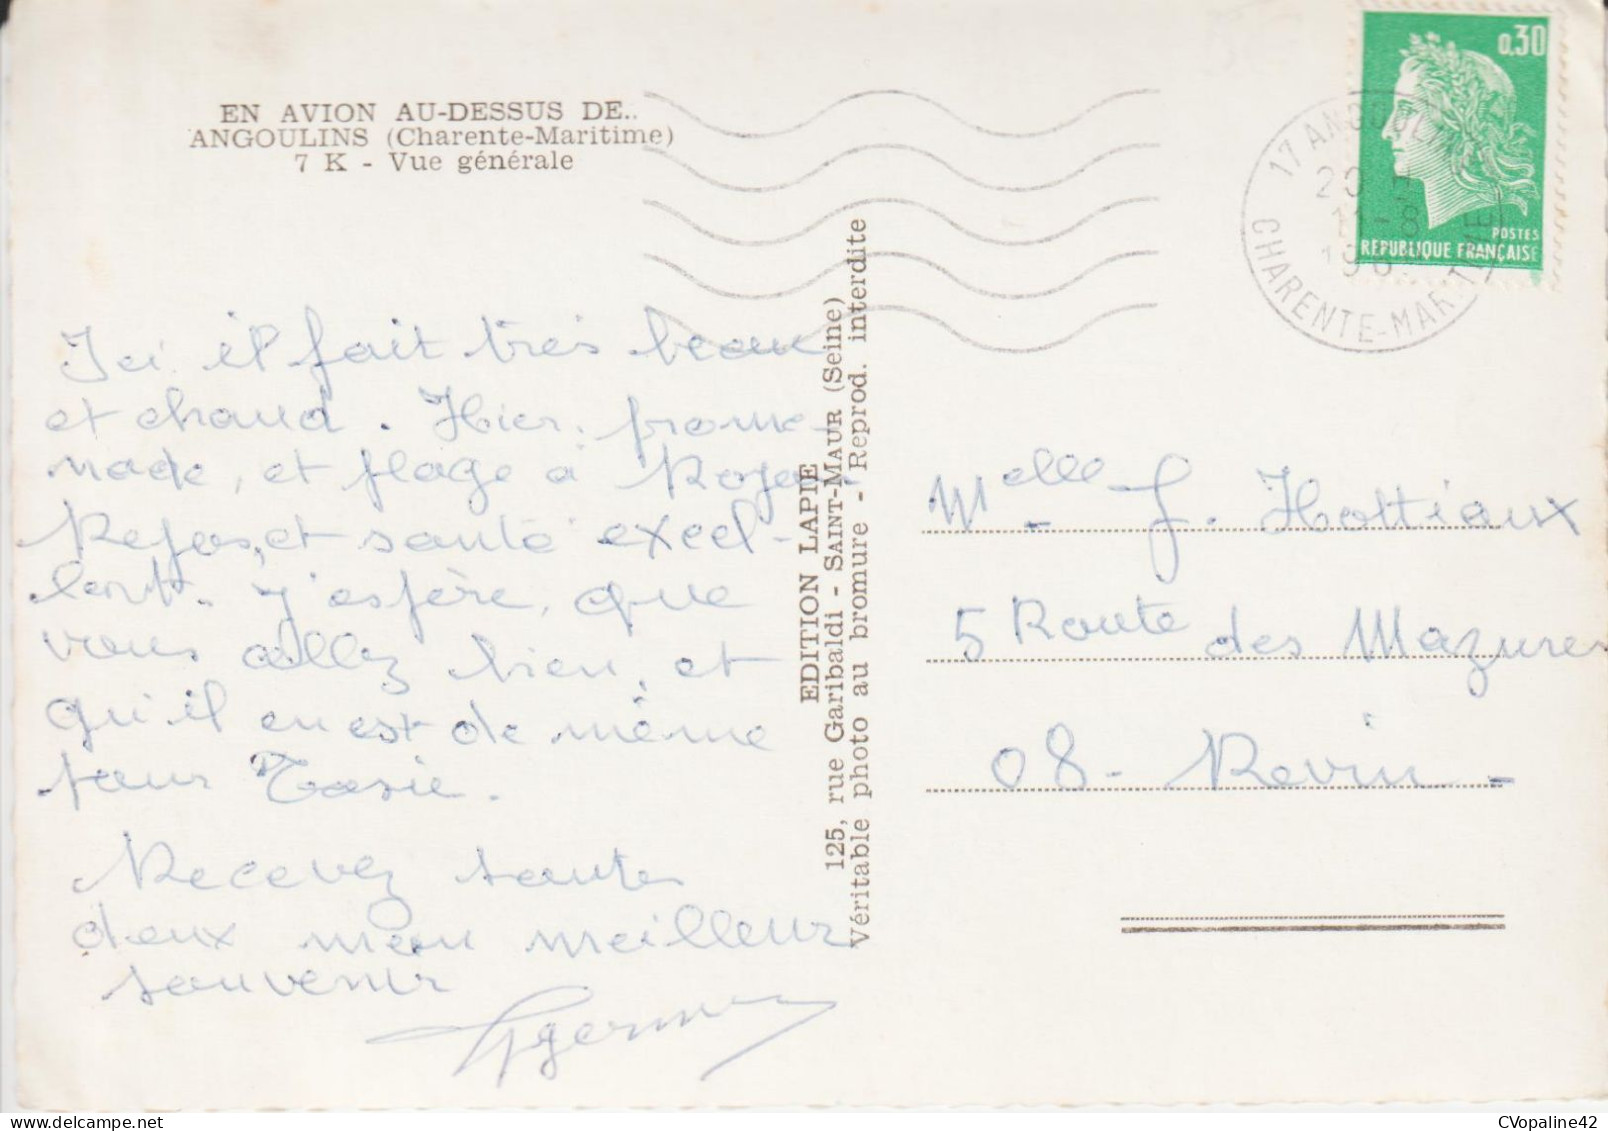 EN AVION AU-DESSUS DE..
ANGOULINS (Charente-Maritime)
7 K - Vue générale
0,30
POSTES
REPUBLIQUE FRANÇAISE
17 ANGOULINS
20 H
11-8
CHARENTE-MARITIME
Ici il fait très beau
et chaud. Hier, prome-
nade, et plage à Royan
Repos, et santé excel-
lent. J'espère, que
vous allez bien, et
qu'il en est de même
pour
Recevez toutes
deux mon meilleur
souvenir
EDITION LAPIE
125, rue Garibaldi - SAINT-MAUR (Seine)
Véritable photo au bromure - Reprod. interdite
Melle J. Hottiaux
5 Route des Mazures
08 - Revin -
CVopaline42